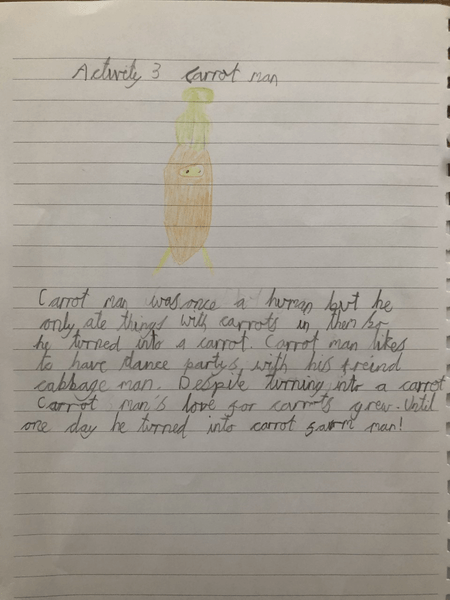 Activity 3 Carrot man
Carrot man was once a human but he
only ate things with carrots in them so
he turned into a carrot. Carrot man likes
to have dance partys with his freind
cabbage man. Despite turning into a carrot
Carrot man's love for carrots grew. Until
one day he turned into carrot farm man!